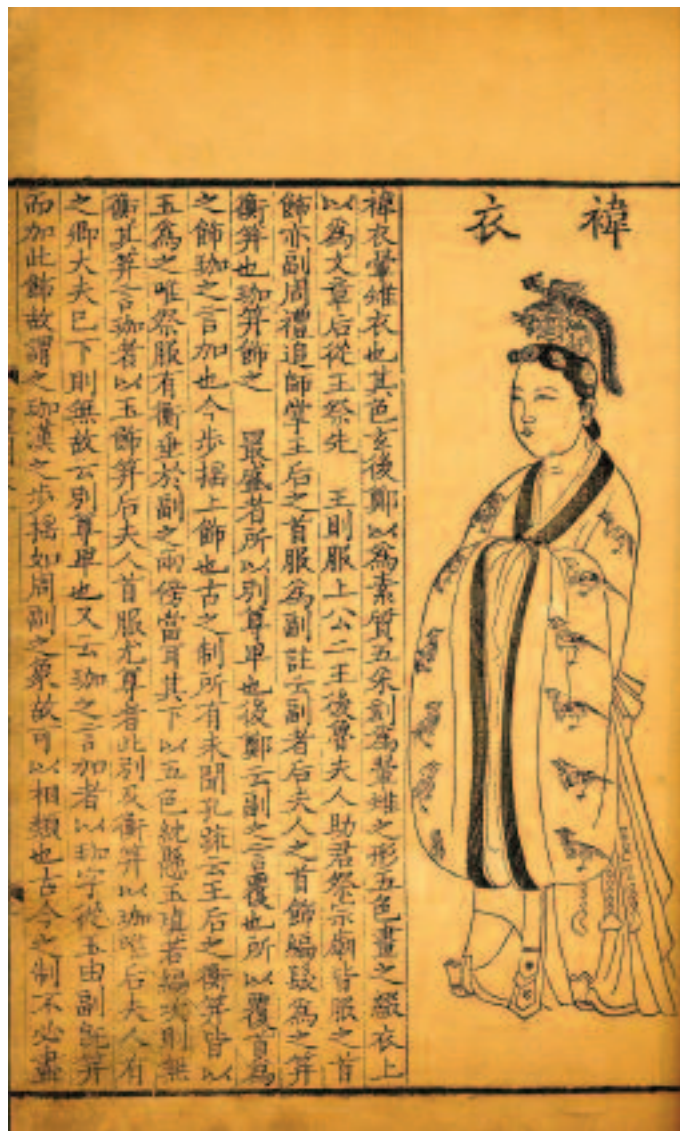 褘衣
褘衣翬雉衣也其色玄後鄭以為素質五采刻為翬雉之形五色畫之綴衣上
以為文章后從王祭先　王則服上公二王後魯夫人助君祭宗廟皆服之首
飾亦副周禮追師掌王后之首服為副註云副者后夫人之首飾編髮為之笄
衡笄也珈笄飾之　最盛者所以別尊卑也後鄭云副之言覆也所以覆首為
之飾珈之言加也今步揺上飾也古之制所有未聞孔疏云王后之衡笄皆以
玉為之唯祭服有衡垂於副之兩傍當耳其下以五色紞懸玉瑱若編次則無
衡其笄言珈者以玉飾笄后夫人首服尤尊者此別及衡笄以珈唯后夫人有
之卿大夫已下則無故云別尊卑也又云珈之言加者以珈字從玉由副既笄
而加此飾故謂之珈漢之步揺如周副之象故可以相類也古今之制不必盡